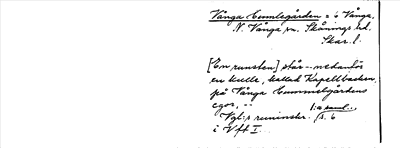 Vånga Gumlegården = i Vånga,
N. Vånga sn. Skånings hd.
Skar. l.
[En runsten] står -- nedanför
en kulle, kallad Kapellbacken,
på Vånga Gummelgårdens
egor, --
1:a saml.
Vgl:s runinskr. s. 6
i Vft I.